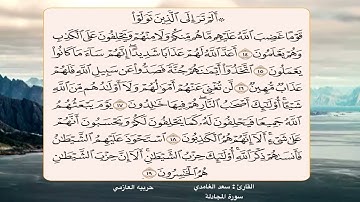 ۞ أَلَمْ تَرَ إِلَى ٱلَّذِينَ تَوَلَّوْا۟
قَوْمًا غَضِبَ ٱللَّهُ عَلَيْهِم مَّا هُم مِّنكُمْ وَلَا مِنْهُمْ وَيَحْلِفُونَ عَلَى ٱلْكَذِبِ
وَهُمْ يَعْلَمُونَ ١٤ أَعَدَّ ٱللَّهُ لَهُمْ عَذَابًا شَدِيدًا إِنَّهُمْ سَآءَ مَا كَانُوا۟
يَعْمَلُونَ ١٥ ٱتَّخَذُوٓا۟ أَيْمَٰنَهُمْ جُنَّةً فَصَدُّوا۟ عَن سَبِيلِ ٱللَّهِ فَلَهُمْ
عَذَابٌ مُّهِينٌ ١٦ لَّن تُغْنِىَ عَنْهُمْ أَمْوَٰلُهُمْ وَلَآ أَوْلَٰدُهُم مِّنَ ٱللَّهِ
شَيْـًٔا أُو۟لَٰٓئِكَ أَصْحَٰبُ ٱلنَّارِ هُمْ فِيهَا خَٰلِدُونَ ١٧ يَوْمَ يَبْعَثُهُمُ
ٱللَّهُ جَمِيعًا فَيَحْلِفُونَ لَهُۥ كَمَا يَحْلِفُونَ لَكُمْ وَيَحْسَبُونَ أَنَّهُمْ
عَلَىٰ شَىْءٍ أَلَآ إِنَّهُمْ هُمُ ٱلْكَٰذِبُونَ ١٨ ٱسْتَحْوَذَ عَلَيْهِمُ ٱلشَّيْطَٰنُ
فَأَنسَىٰهُمْ ذِكْرَ ٱللَّهِ أُو۟لَٰٓئِكَ حِزْبُ ٱلشَّيْطَٰنِ أَلَآ إِنَّ حِزْبَ ٱلشَّيْطَٰنِ
هُمُ ٱلْخَٰسِرُونَ ١٩
القارئ : سعد الغامدي
حربيه العازمي
سورة المجادلة